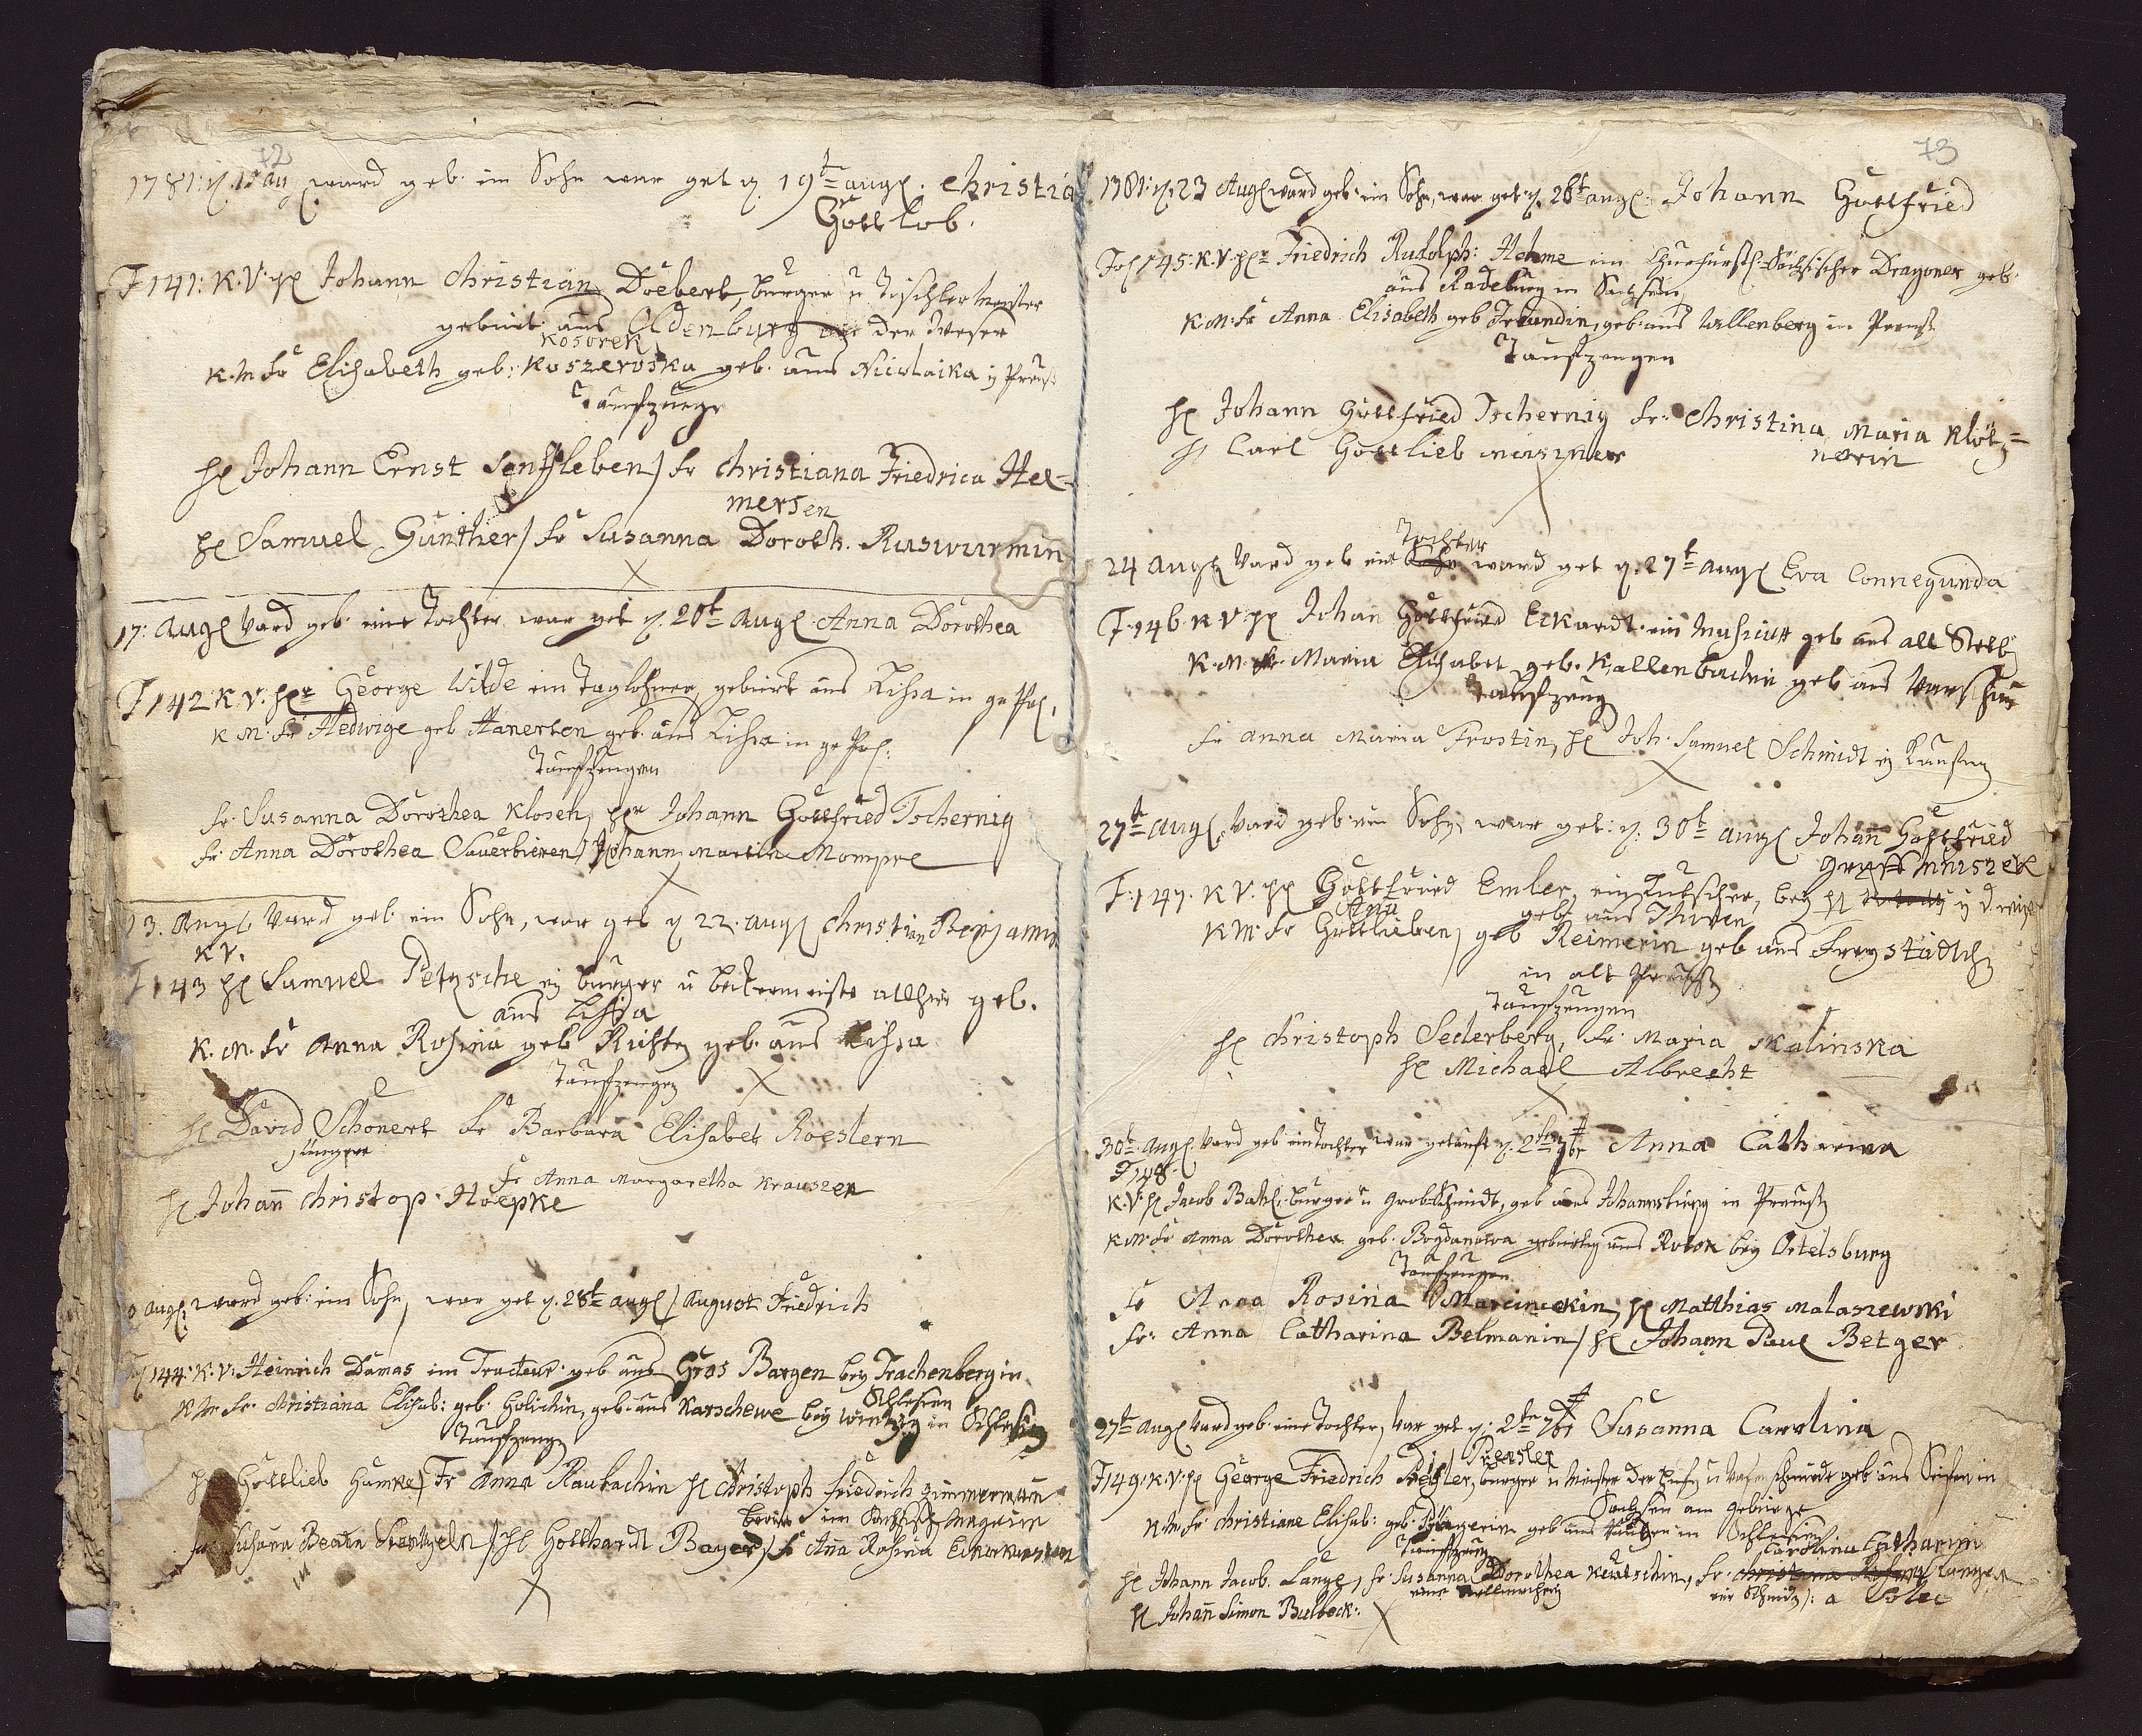 72
1781: d. 15 aug ward geb. ein Sohn war get d. 19t aug. Christia
Gottlob.
F 141: K. V. H Johann Christian Doebert, Burger u Tischlermeister
gebürt aus Oldenburg an der Weser
Kosorek
K. M Fr Elisabeth geb: Koszeroska geb. aus Nicolaika in Preuß
Taufzeuge
H Johann Ernst Senffleben / Fr Christiana Friedrica Hel=
mersen
H Samuel Günther / Fr Susanna Doroth. Ruswurmin
17: Aug Ward geb. eine Tochter war get d. 20t Aug Anna Dorothea
F 142 K. V. Hr George Wilde ein Taglohner, gebürt aus Lissa in gr Pol.
K M. Fr Hedwige geb Hanerten geb. aus Lissa in gr Pol:
Taufzeugen
Fr. Susanna Dorothea Klosen, Hr Johann Gottfried Tschernig
Fr. Anna Dorothea Sauerbieren / Johann Martin Mompre
13. Aug Ward geb. ein Sohn, war get d 22. aug Christian Benjamin
K V.
F 143 H Samuel Petzsche ein burger u beckermeister allhier geb.
aus Lissa
K. M. Fr Anna Rosina geb Richter geb. aus Lissa
Taufzeugen
H David Schonert Fr Barbara Elisabet Roestern
jungere
Fr Anna Margaretha Krauszen
H Johann Christop. Hoepke
aug ward geb: ein Sohn, war get d. 28t aug / August Friedrich
144: K. V. Heinrich Damas ein Tracteur. geb aus Gros Bargen bey Trachenberg in
Schlesien
K M Fr. Christiana Elisab: geb. Golichin, geb. aus Karschewe bey Wintzig in Schlesien
Taufzeuge
H Gottlieb Humke / Fr Anna Raubachin H Christoph Friedrich Zimmermann
im Sächsisch Magazin
Susana Beata / H Gotthardt Bayer / Fr Ana Rosina
73
1781: d. 23 Aug ward geb: ein Sohn, war get d. 26t aug: Johann Gottfried
Fol 145: K. V. Hr Friedrich Rudolph: Hehme ein Churfürstl: Sächsischer Dragoner geb.
aus Radeburg in Sachsen
K M: Fr Anna Elisabeth geb Freundin, geb: aus Wallenberg in Preuß
Taufzeugen
H Johann Gottfried Tschernig Fr: Christina Maria Klötz=
nerin
H Carl Gottlieb
Tochter
24 Aug Ward geb eine Sohn ward get d. 27t Aug Eva Connegunda
F. 146. K V. H Johan Gottfried Eckardt. ein Musicus geb aus alt
K. M. Fr. Maria Elisabet geb. Kallenbachin geb aus Warschau
Taufzeug
Fr Anna Maria Frostin, H Joh. Samuel Schmidt ein Kaufm
27t Aug. Ward geb: ein Sohn, war get: d. 30t Aug Johan Gottfried
Graff Mniszek
F. 147. K V. H Gottfried Emler, ein Kutscher, bey H
geb aus Thiren
Ana
K M: Fr Gottlieben, geb Reimerin geb aus Freystädtch
in alt Preuß
Taufzeugen
H Christoph Sederberg, Fr. Maria Skalinska
H Michael Albrecht
30t. Aug. Ward geb eine Tochter war getauft d. 2ten 7br Anna Catharina
F 148
K. V. H Jacob Burger u Grobschmidt, geb aus Johannsburg in Preuß
K M: Fr Anna Dorothea geb. Bogdanowa gebürtig aus bey Ortelsburg
Taufzeugen
Fr Anna Rosina Marcinickin, H Matthias Malaszewski
Fr: Anna Catharina Belmanin / H Johann Paul Betger
27t Aug Ward geb: eine Tochter, War get d: 2ten 7br Susanna Carolina
Peisler
F 149: K. V. H George Friedrich Burger u Meister der Huf u Wafenschmiede geb aus Seifen in
Sachsen am Gebürge
K M Fr Christiane Elisab: geb. geb aus in Schlesien
Taufzeug
Carolina Catharin
H Johann Jacob. Lange, Fr. Susanna Dorothea Fr. Langen
ein Schmidt a Solec
H Johañ Simon Bulbeck: